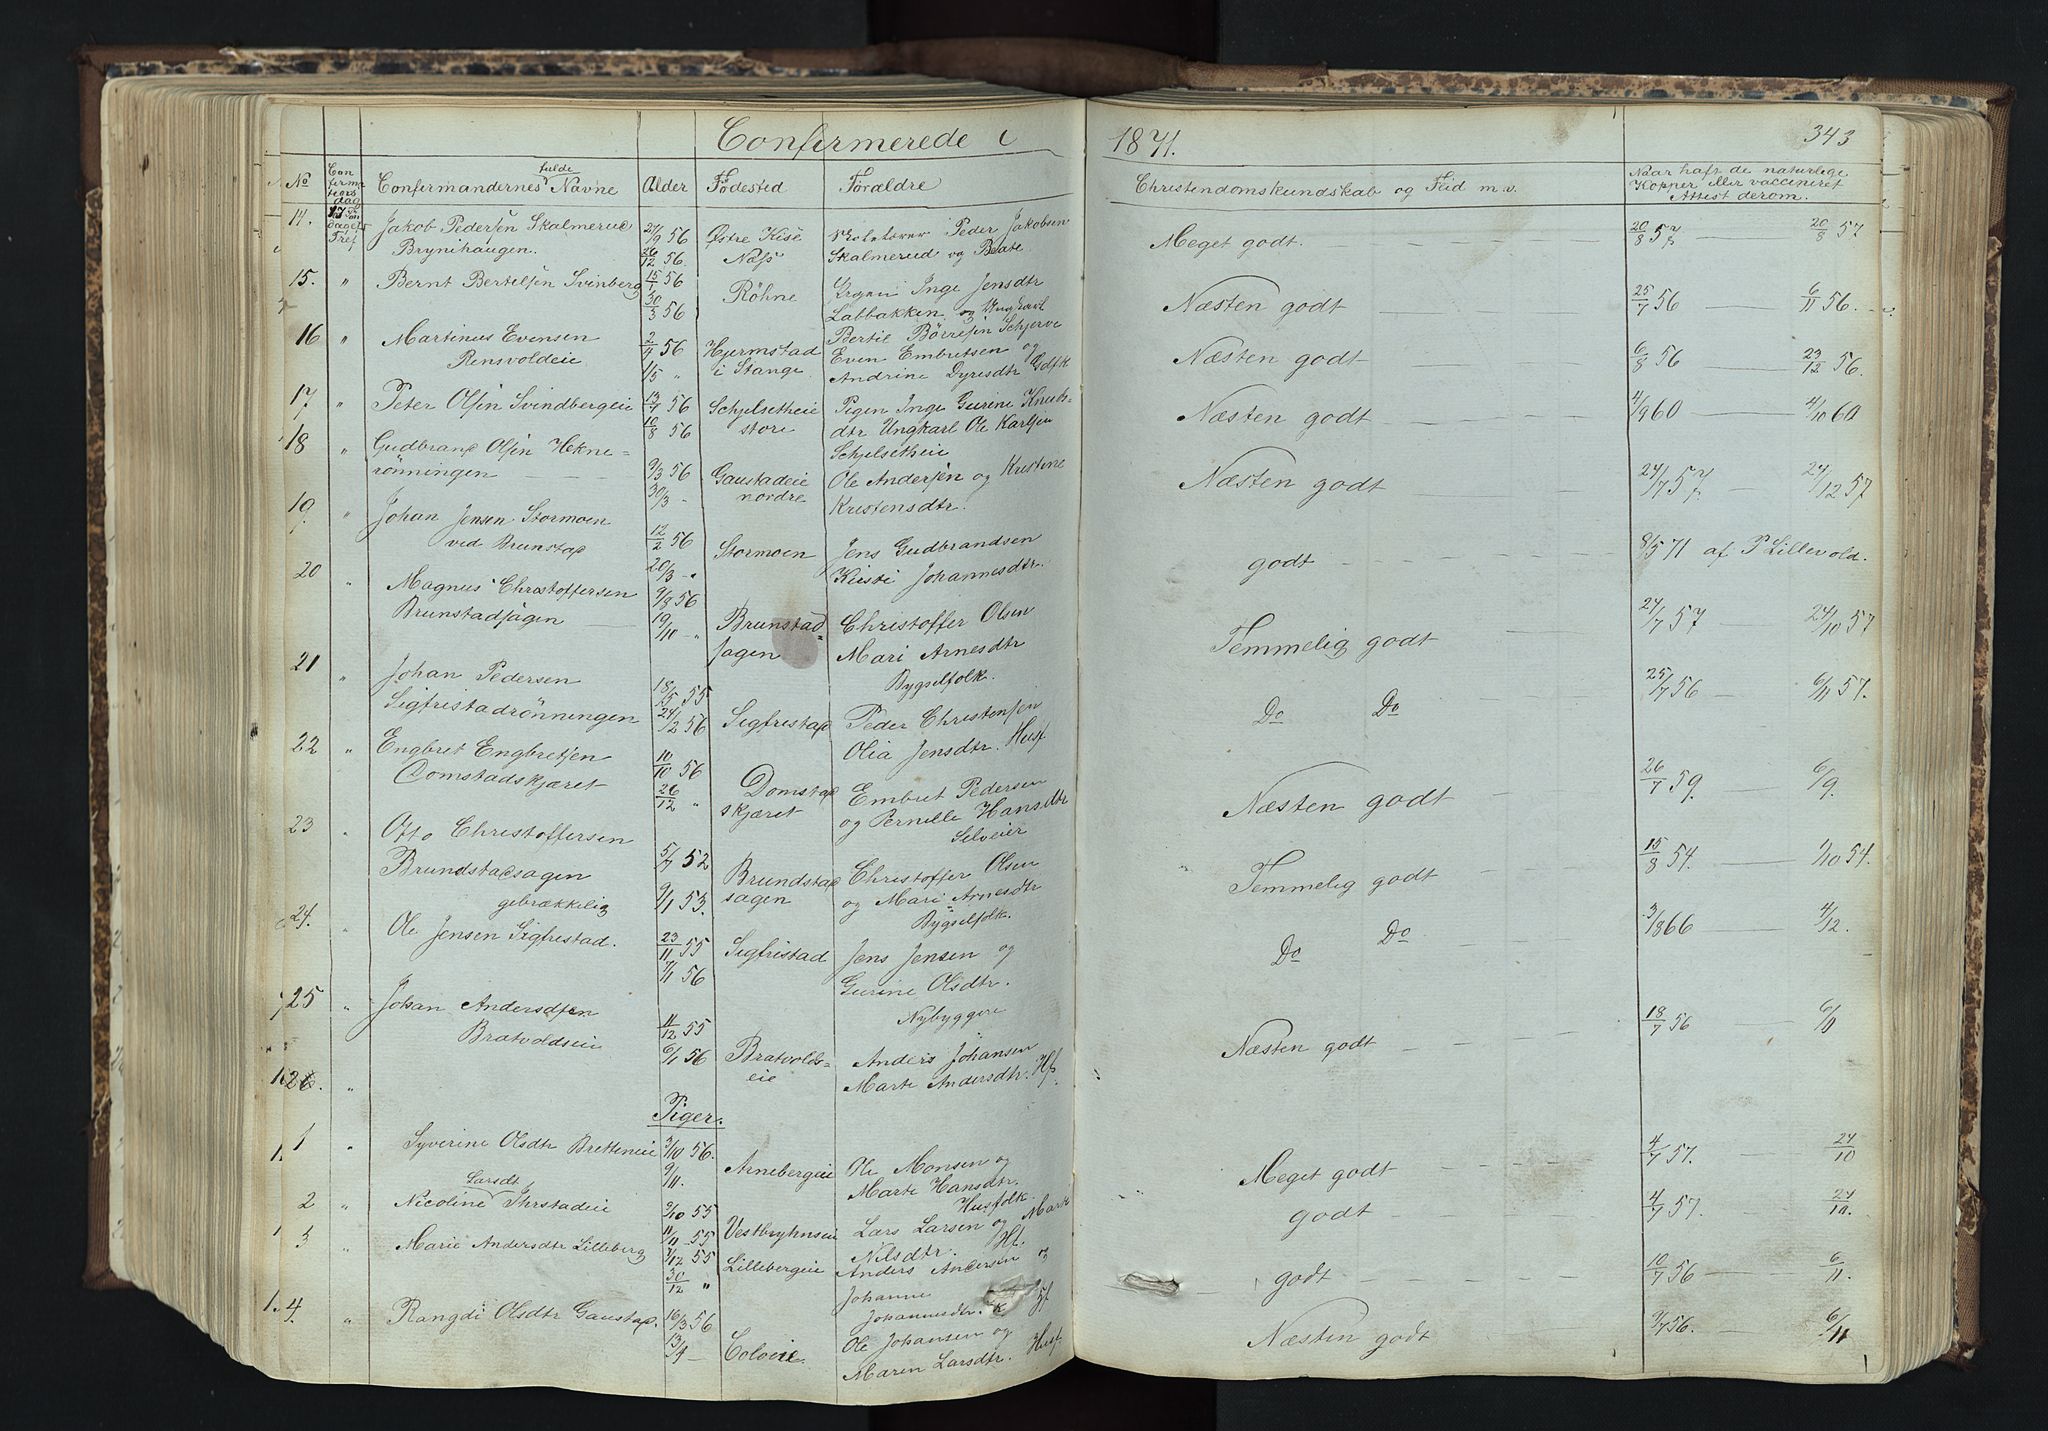 Confirmerede i 1871.
343
No
Confirmationsdag
Confirmandernes fulde Navne
Alder
Födested
Forældre
Christendomskundskab og Flid m.v.
Naar haft de naturlige Kopper eller vaccineret Attest derom.
14. Jakob Pedersen Skalmerud 27/9 56 Østre Kise Skolelærer Peder Jakobsen Meget godt. 20/8 57 20/8 57
Brynihaugen. 26/12 56 Næss Skalmerud og Beate
15. " Bernt Bertelsen Svinberg 15/1 56 Röhne Pigen Inge Jensdtr Næsten godt 25/7 56 6/11 56.
30/3 56 Labbakken og Ungkarl
Bertil Börresen Schjerve
16 " Martinus Evensen 2/4 56 Hjermstad Even Embretsen og Næsten godt 6/8 56 23/12 56.
Rensvoldeie 1/5 " i Stange Andrine Dyresdtr Gdfk
17 " Peter Olsen Svindbergeie 13/7 56 Schjelsetheie Pigen Inge Gurine Knuds- Næsten godt 4/9 60 4/10 60
10/8 56 store dtr Ungkarl Ole Karlsen
Schjelsetheie
18 " Gudbrand Olsen Hekne- 9/3 56 Gaustadeie Ole Andersen og Kristine Næsten godt 24/7 57 24/12 57
rönningen 30/3 - nordre Kristensdtr.
19. " Johan Jensen Stormoen 12/2 56 Stormoen Jens Gudbrandsen godt 8/5 71 af P Lillevold.
ved Brunstad 20/3 - Kirsti Johannesdtr.
20 " Magnus Christoffersen 9/8 56 Brunstad- Christoffer Olsen Temmelig godt 24/7 57 24/10 57
Brunstadsagen 19/10 " sagen Mari Arnesdtr
Bygselfolk.
21 " Johan Pedersen 18/5 55 Sigfristad Peder Christensen Do Do 25/7 56 6/11 57.
Sigfristadrönningen 24/2 56 Olia Jensdtr. Husf
22 " Engbret Engbretsen 10/10 56 Domstad Embret Pedersen Næsten godt 26/7 59. 6/9.
Domstadskjæret 26/12 " skjæret og Pernille Hansdtr
Selveier
23 " Otto Christoffersen 5/7 52 Brundstad Christoffer Olsen Temmelig godt 15/8 54. 1/10 54.
Brundstadsagen 9/1 53. sagen og Mari Arnesdtr
gebrækkelig Bygselfolk.
24. " Ole Jensen Sigfrestad. 23/11 55 Sigfristad Jens Jensen og Do Do 3/8 66 4/12.
7/1 56 Gurine Olsdtr.
Nybyggere
25 " Johan Andersdsen 11/12 55 Bratvolds- Anders Johansen Næsten godt 18/7 56 6/11
Bratvoldseie 6/1 56 eie Marte Andersdtr. Hf.
26. "
Piger.
1 " Syverine Olsdtr Bretteneie 3/10 56. Arnebergeie Ole Monsen og Meget godt. 4/7 57. 24/10
9/11. Marte Hansdtr.
Husfolk.
2 " Nicoline Larsdt Ihrstadeie 9/10 55 Vestbryhnseie Lars Larsen og Marte godt 4/7 57. 24/10.
11/11 55 Nilsdtr. Hf.
3 " Marie Andersdtr Lilleberg 7/12 55 Lillebergeie Anders Andersen og godt 10/7 56 6/11.
30/12 " Johanne
Johannesdtr. Hf
4. " Rangdi Olsdtr Gaustad. 16/3 56 Coloeie. Ole Johansen og Næsten godt 3/7 56. 6/11
13/4 - Maren Larsdtr. Husf